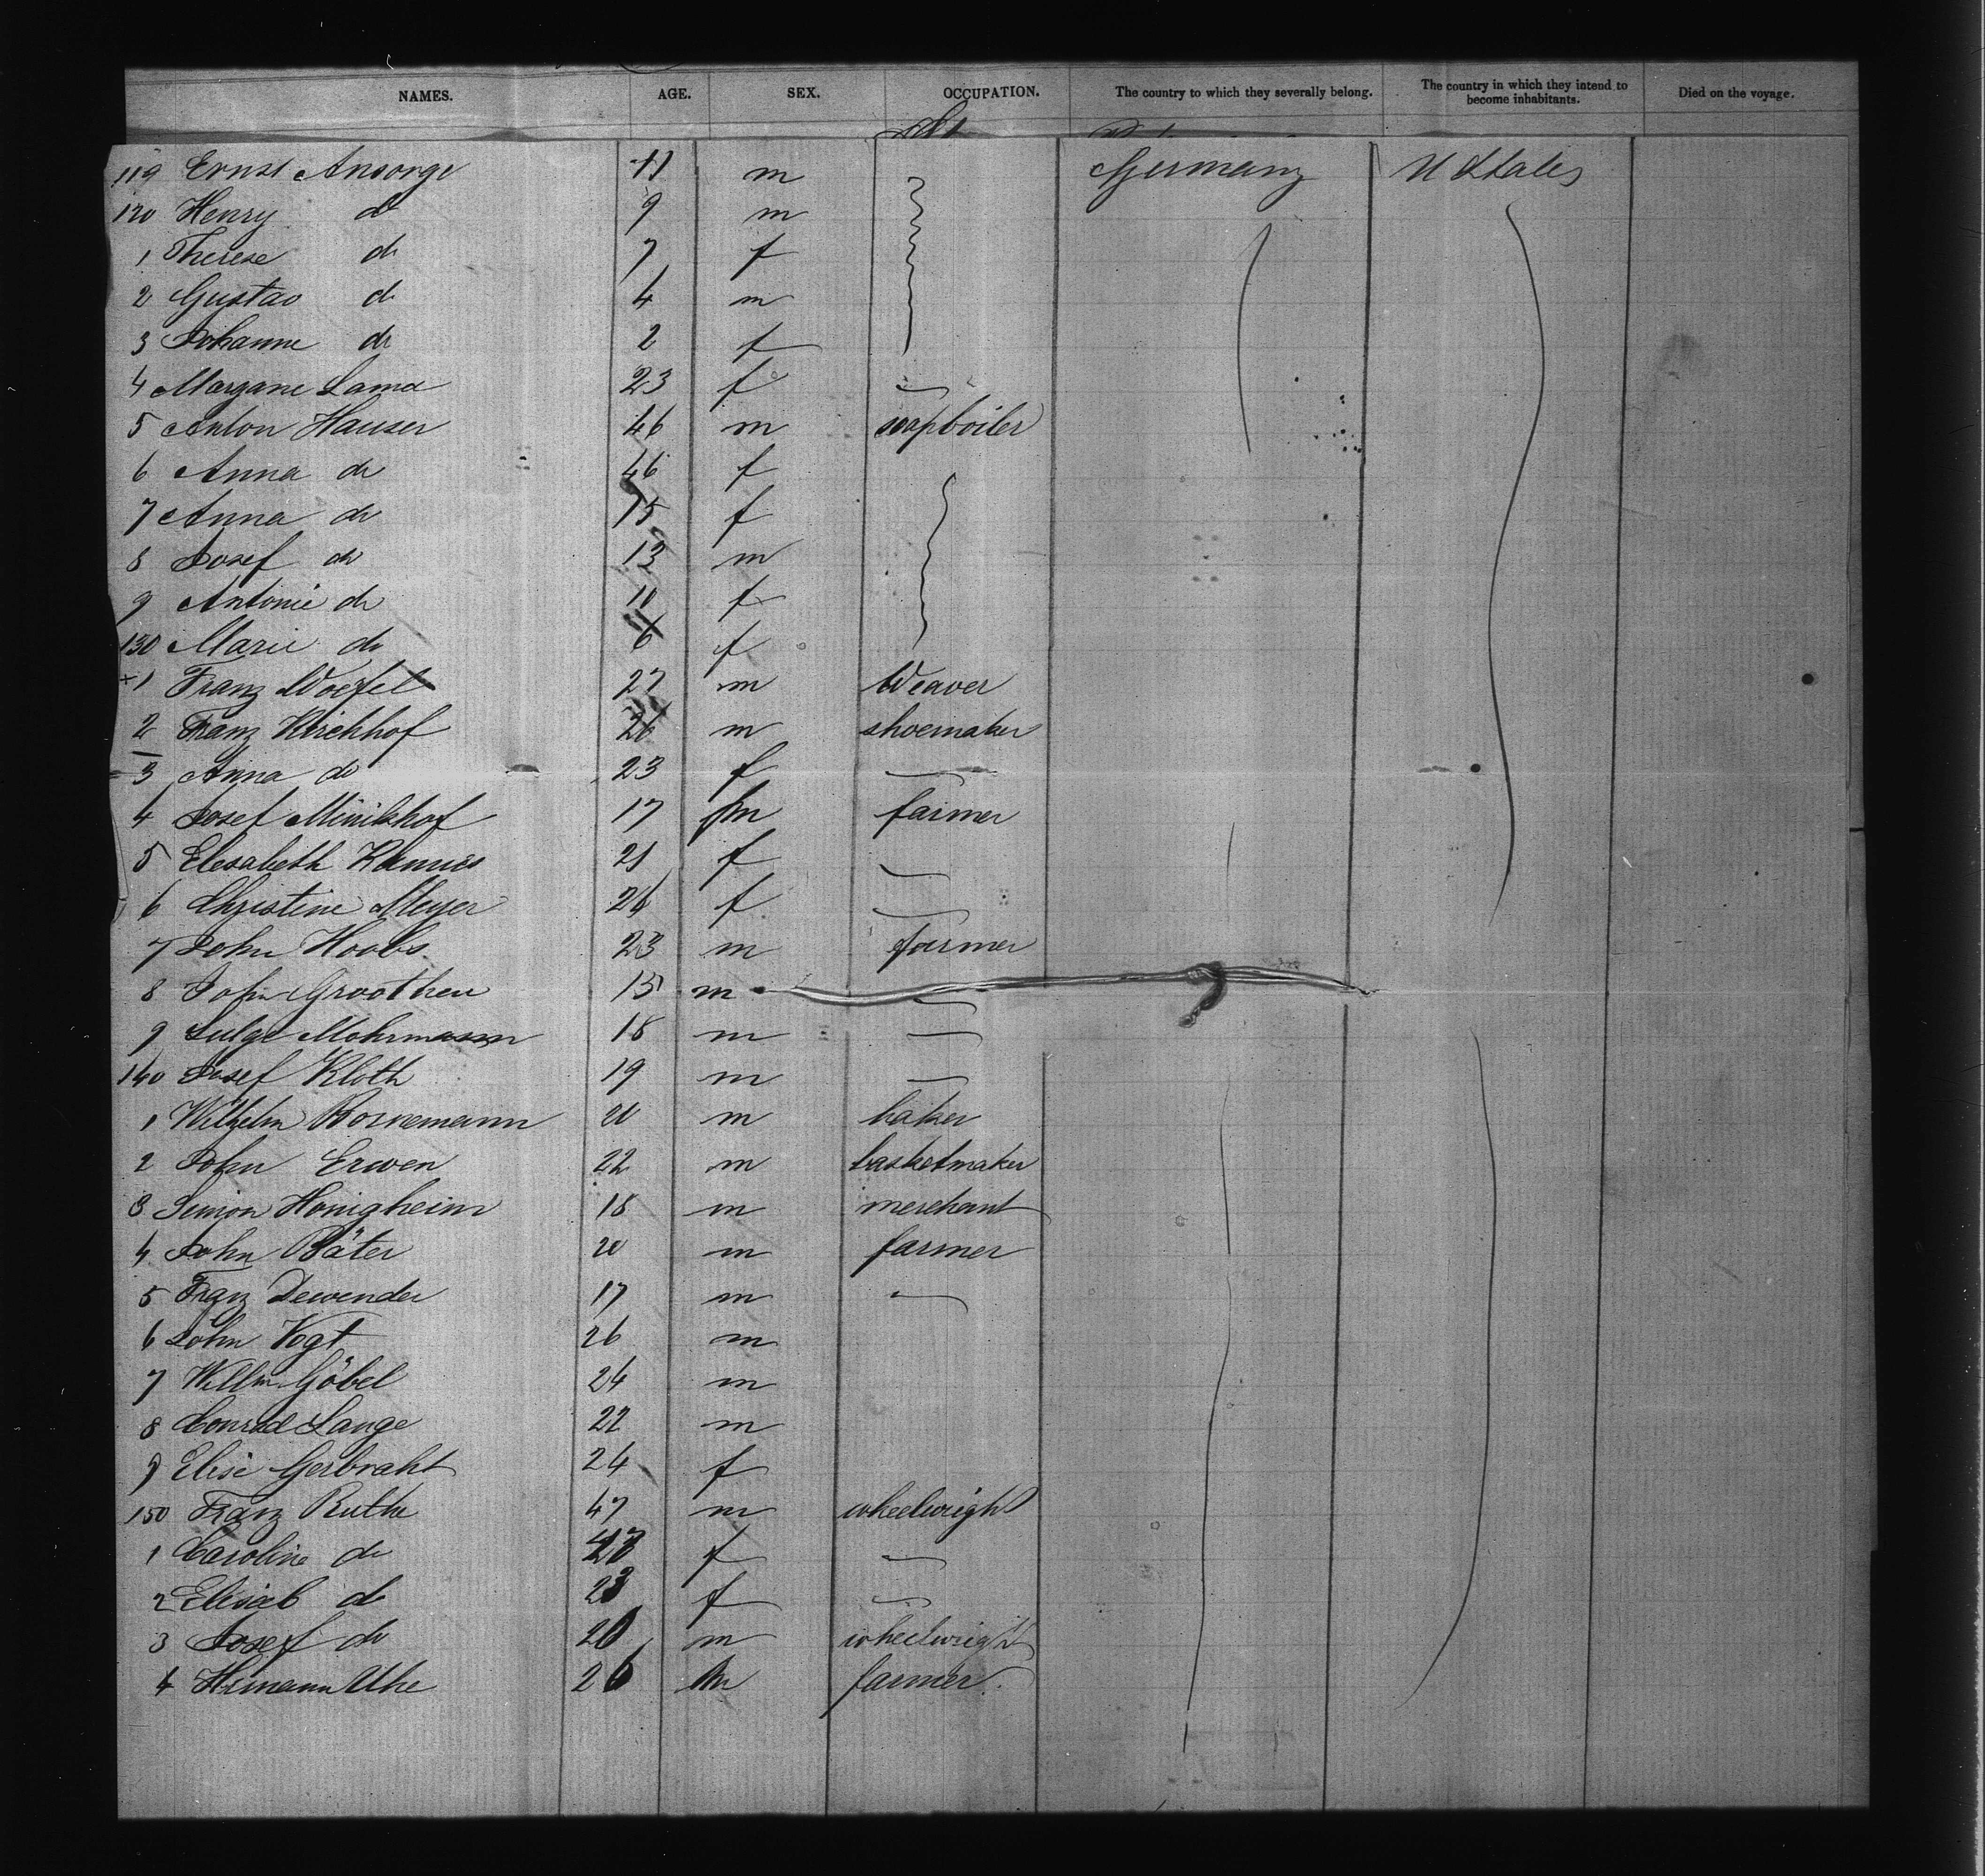 NAMES. AGE. SEX. OCCUPATION. The country to which they severally belong. The country in which they intend to become inhabitants. Died on the voyage.
119 Ernst Ansorge 11 m Germany U States
120 Henry do 9 m
1 Therese do 7 f
2 Gustav do 4 m
3 Johanne do 2 f
4 Margane Lama 23 f —
5 Anton Hauser 46 m soapboiler
6 Anna do 46 f
7 Anna do 15 f
8 Josef do 13 m
9 Antonie do 10 f
130 Marie do 6 f
+1 Franz Woefel 27 m Weaver
2 Franz Kirchhof 26 m shoemaker
3 Anna do 23 f —
4 Josef Minikhof 17 m farmer
5 Elesabeth 21 f —
6 Christine Meyer 26 f —
7 John Hoobs 23 m farmer
8 John Groothen 15 m —
9 Mohrmann 18 m —
140 Josef Kloth 19 m —
1 Wilhelm Bornemann 20 m baker
2 John Erwen 22 m basketmaker
3 Simon Honigheim 18 m merchant
4 John Päter 20 m farmer
5 Franz Dewender 17 m —
6 John Vogt 26 m
7 Willm Göbel 24 m
8 Conrad Lange 22 m
9 Elise Gerbraht 24 f
150 Franz Ruthe 47 m wheelwright
1 Caroline do f —
2 Elisab do 23 f —
3 Josef do 20 m wheelwright
4 Hermann Uhe 26 m farmer.